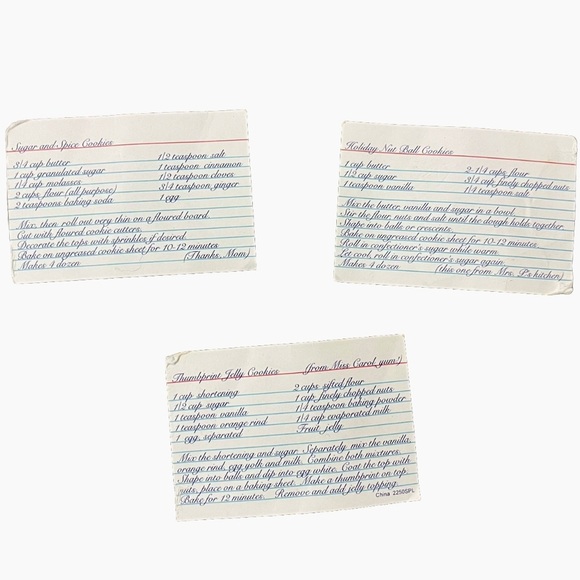 Sugar and Spice Cookies
3/4 cup butter 1/2 teaspoon salt
1 cup granulated sugar 1 teaspoon cinnamon
1/4 cup molasses 1/2 teaspoon cloves
2 cups flour (all purpose) 3/4 teaspoon ginger
2 teaspoons baking soda 1 egg
Mix, then roll out very thin on a floured board.
Cut with floured cookie cutters.
Decorate the tops with sprinkles if desired.
Bake on ungreased cookie sheet for 10-12 minutes
Makes 4 dozen (Thanks, Mom)
Holiday Nut Ball Cookies
1 cup butter 2 1/4 cups flour
1/2 cup sugar 3/4 cup finely chopped nuts
1 teaspoon vanilla 1/4 teaspoon salt
Mix the butter, vanilla and sugar in a bowl.
Stir the flour, nuts and salt until the dough holds together.
Shape into balls or crescents.
Bake on ungreased cookie sheet for 10-12 minutes.
Roll in confectioner's sugar while warm.
Let cool, roll in confectioner's sugar again.
Makes 4 dozen (this one from Mrs. P's kitchen)
Thumbprint Jelly Cookies (from Miss Carol, yum!)
1 cup shortening 2 cups sifted flour
1/2 cup sugar 1 cup finely chopped nuts
1 teaspoon vanilla 1/4 teaspoon baking powder
1 teaspoon orange rind 1/4 cup evaporated milk
1 egg, separated Fruit jelly
Mix the shortening and sugar. Separately, mix the vanilla,
orange rind, egg yolk and milk. Combine both mixtures.
Shape into balls and dip into egg white. Coat the top with
nuts, place on a baking sheet. Make a thumbprint on top.
Bake for 12 minutes. Remove and add jelly topping.